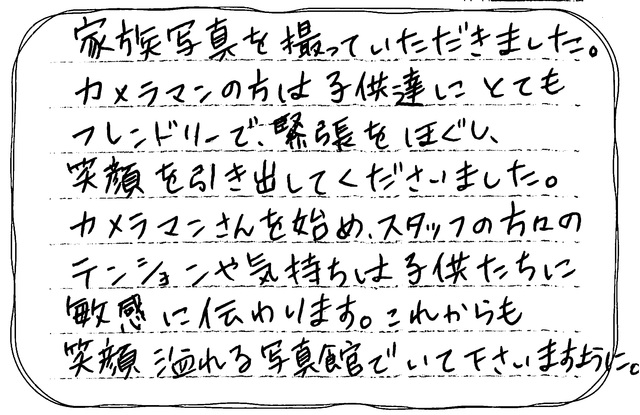 家族写真を撮っていただきました。
カメラマンの方は子供達にとても
フレンドリーで、緊張をほぐし、
笑顔を引き出してくださいました。
カメラマンさんを始め、スタッフの方々の
テンションや気持ちは子供たちに
敏感に伝わります。これからも
笑顔溢れる写真館でいて下さいますように。